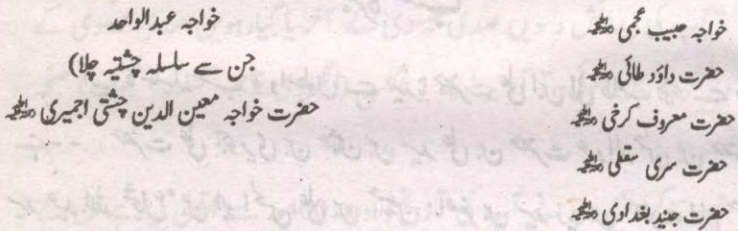 خواجہ حبیب عجمی رحمۃ اللہ علیہ
حضرت داؤد طائی رحمۃ اللہ علیہ
حضرت معروف کرخی رحمۃ اللہ علیہ
حضرت سری سقطی رحمۃ اللہ علیہ
حضرت جنید بغدادی رحمۃ اللہ علیہ
خواجہ عبدالواحد
جن سے سلسلہ چشتیہ چلا)
حضرت خواجہ معین الدین چشتی اجمیری رحمۃ اللہ علیہ